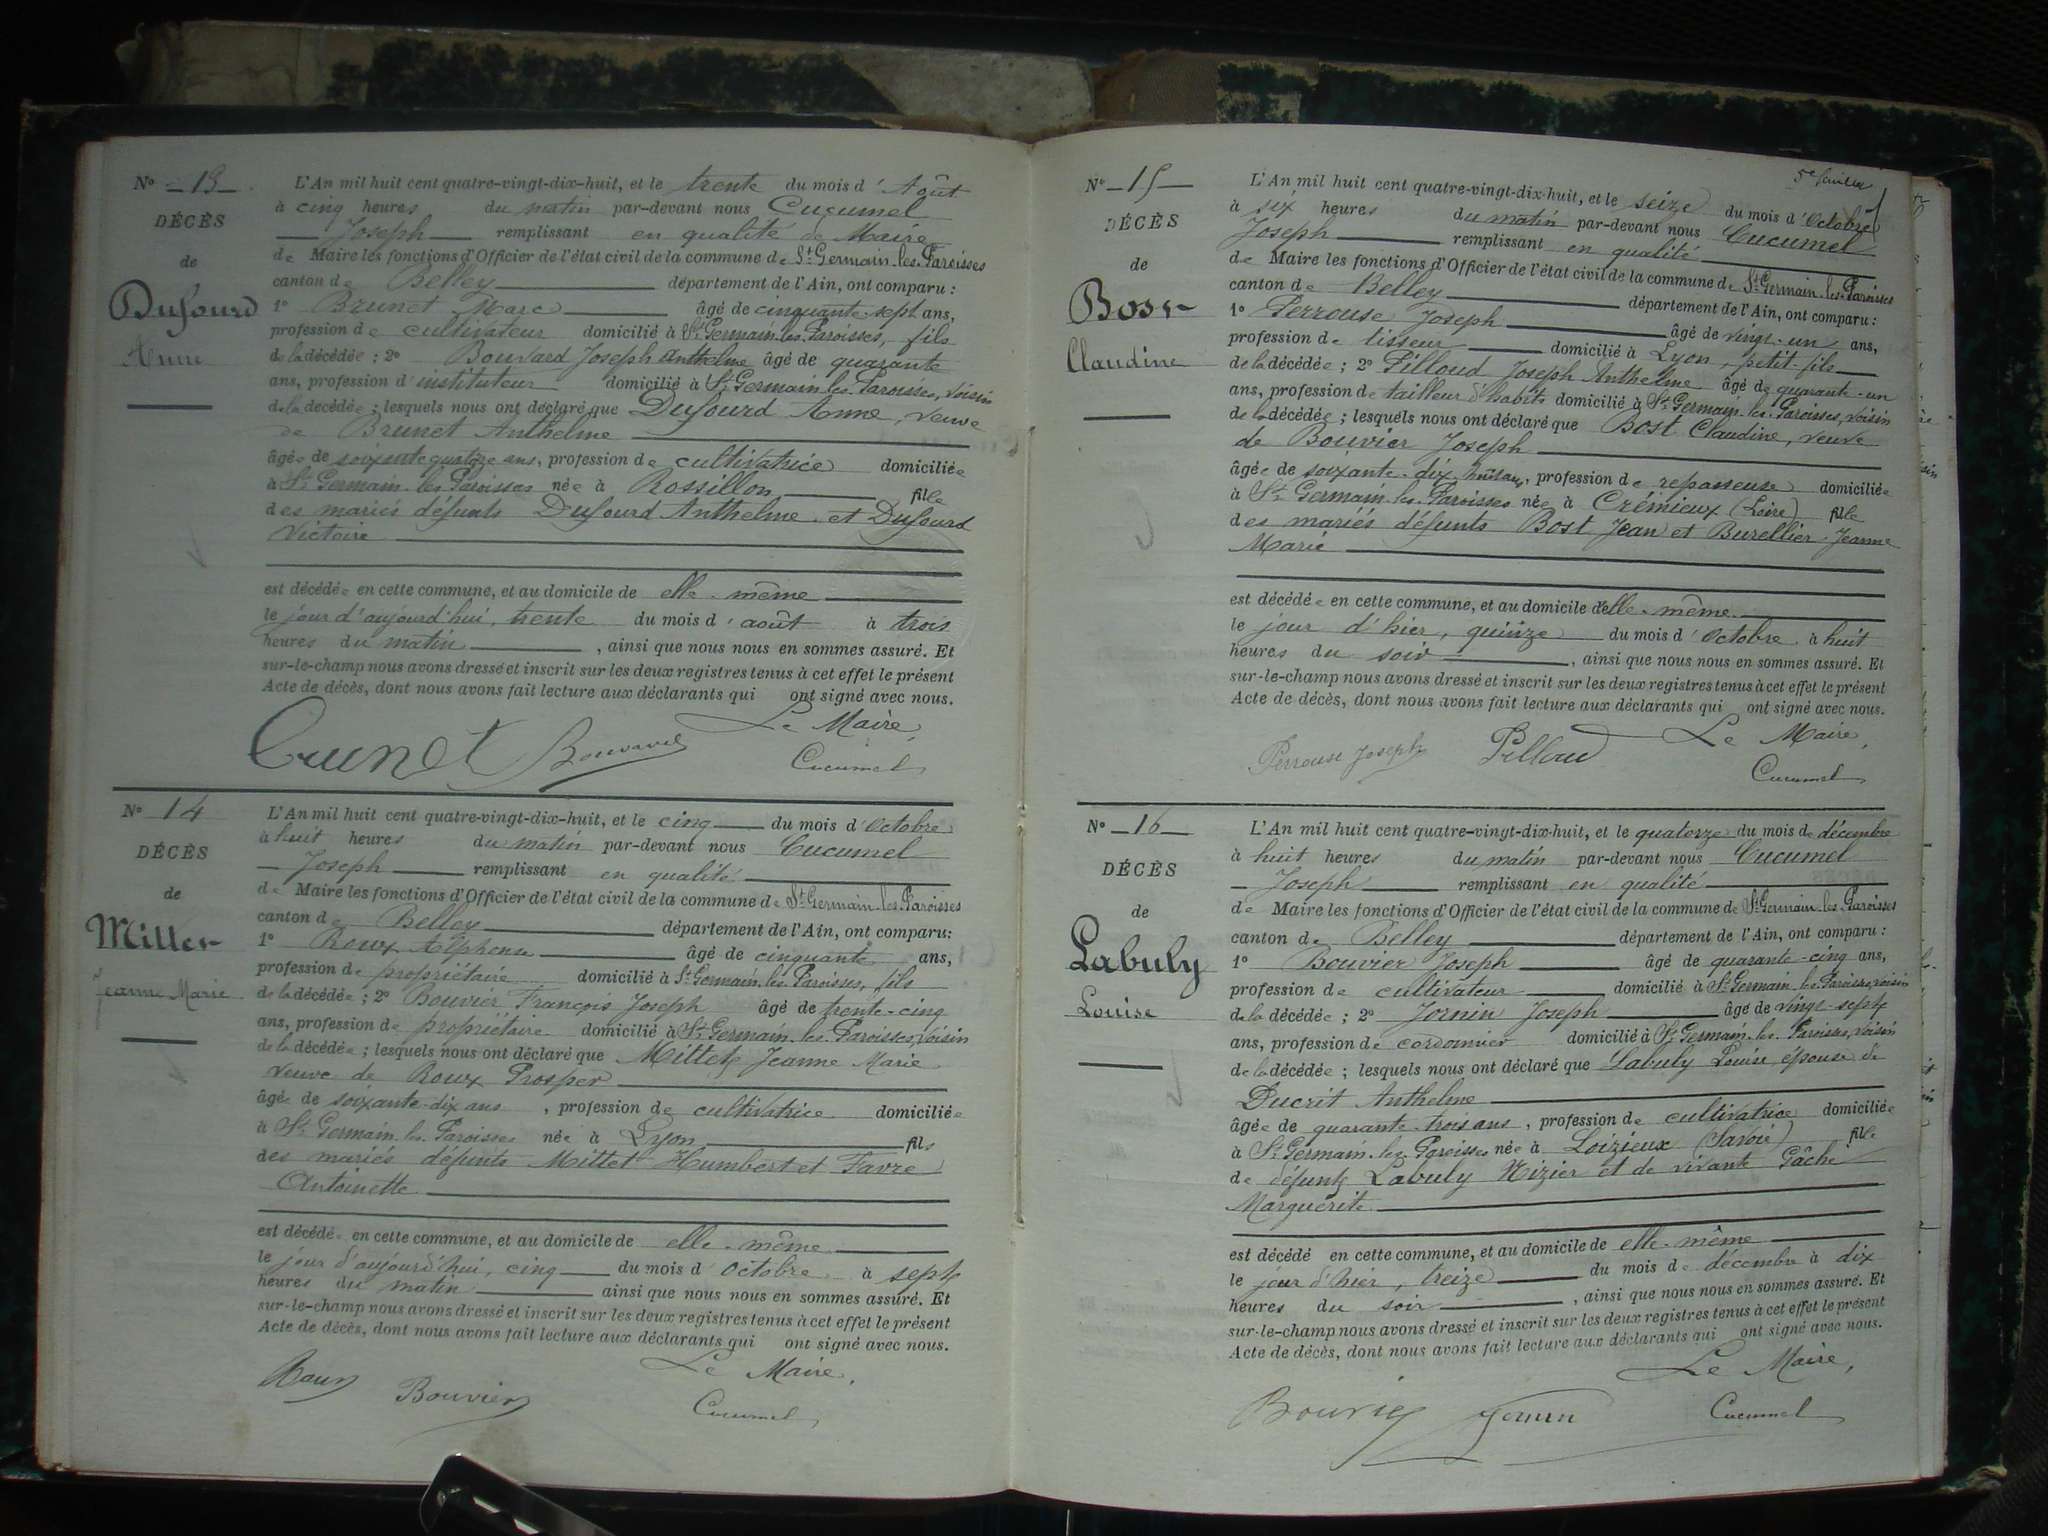 N° — 13 —
DÉCÈS
de
Dufourd
Anne
L'An mil huit cent quatre-vingt-dix-huit, et le trente du mois d'Août
à cinq heures du matin par-devant nous Cucumel
Joseph remplissant en qualité de Maire
de Maire les fonctions d'Officier de l'état civil de la commune de St Germain-les-Paroisses
canton de Belley département de l'Ain, ont comparu :
1° Brunet Marc âgé de cinquante-sept ans,
profession de cultivateur domicilié à St Germain-les-Paroisses, fils
de la décédée ; 2° Bouvard Joseph Anthelme âgé de quarante
ans, profession d'instituteur domicilié à St Germain-les-Paroisses, voisin
de la décédée ; lesquels nous ont déclaré que Dufourd Anne, veuve
de Brunet Anthelme
âgée de soixante quatorze ans, profession de cultivatrice domiciliée
à St Germain-les-Paroisses née à Rossillon fille
des mariés défunts Dufourd Anthelme et Dufourd
Victoire
est décédée en cette commune, et au domicile de elle-même
le jour d'aujourd'hui, trente du mois d'août à trois
heures du matin, ainsi que nous nous en sommes assuré. Et
sur-le-champ nous avons dressé et inscrit sur les deux registres tenus à cet effet le présent
Acte de décès, dont nous avons fait lecture aux déclarants qui ont signé avec nous.
Le Maire,
Brunet Bouvard Cucumel
N° 14
DÉCÈS
de
Millet
Jeanne Marie
L'An mil huit cent quatre-vingt-dix-huit, et le cinq du mois d'Octobre
à huit heures du matin par-devant nous Cucumel
— Joseph — remplissant en qualité
de Maire les fonctions d'Officier de l'état civil de la commune de St Germain-les-Paroisses
canton de Belley département de l'Ain, ont comparu :
1° Roux Alphonse âgé de cinquante ans,
profession de propriétaire domicilié à St Germain-les-Paroisses, fils
de la décédée ; 2° Bouvier François Joseph âgé de trente-cinq
ans, profession de propriétaire domicilié à St Germain-les-Paroisses, voisin
de la décédée ; lesquels nous ont déclaré que Millet Jeanne Marie
veuve de Roux Prosper
âgée de soixante-dix ans, profession de cultivatrice domiciliée
à St Germain-les-Paroisses née à Lyon fils
des mariés défunts Millet Humbert et Favre
Antoinette
est décédée en cette commune, et au domicile de elle-même
le jour d'aujourd'hui, cinq du mois d'Octobre à sept
heures du matin ainsi que nous nous en sommes assuré. Et
sur-le-champ nous avons dressé et inscrit sur les deux registres tenus à cet effet le présent
Acte de décès, dont nous avons fait lecture aux déclarants qui ont signé avec nous.
Le Maire,
Roux Bouvier Cucumel
5e feuillet
N° — 15 —
DÉCÈS
de
Bost
Claudine
L'An mil huit cent quatre-vingt-dix-huit, et le seize du mois d'Octobre
à six heures du matin par-devant nous Cucumel
Joseph remplissant en qualité
de Maire les fonctions d'Officier de l'état civil de la commune de St Germain-les-Paroisses
canton de Belley département de l'Ain, ont comparu :
1° Perrouse Joseph âgé de vingt-un ans,
profession de tisseur domicilié à Lyon, petit-fils
de la décédée ; 2° Pilloud Joseph Anthelme âgé de quarante-un
ans, profession de tailleur d'habits domicilié à St Germain-les-Paroisses, voisin
de la décédée ; lesquels nous ont déclaré que Bost Claudine, veuve
de Bouvier Joseph
âgée de soixante-dix-huit ans, profession de repasseuse domiciliée
à St Germain-les-Paroisses née à Crémieux (Loire) fille
des mariés défunts Bost Jean et Burellier Jeanne
Marie
est décédée en cette commune, et au domicile d'elle-même
le jour d'hier, quinze du mois d'Octobre à huit
heures du soir, ainsi que nous nous en sommes assuré. Et
sur-le-champ nous avons dressé et inscrit sur les deux registres tenus à cet effet le présent
Acte de décès, dont nous avons fait lecture aux déclarants qui ont signé avec nous.
Le Maire,
Perrouse Joseph Pilloud Cucumel
N° — 16 —
DÉCÈS
de
Labuly
Louise
L'An mil huit cent quatre-vingt-dix-huit, et le quatorze du mois de décembre
à huit heures du matin par-devant nous Cucumel
— Joseph — remplissant en qualité
de Maire les fonctions d'Officier de l'état civil de la commune de St Germain-les-Paroisses
canton de Belley département de l'Ain, ont comparu :
1° Bouvier Joseph âgé de quarante-cinq ans,
profession de cultivateur domicilié à St Germain-les-Paroisses, voisin
de la décédée ; 2° Jornin Joseph âgé de vingt-sept
ans, profession de cordonnier domicilié à St Germain-les-Paroisses, voisin
de la décédée ; lesquels nous ont déclaré que Labuly Louise épouse de
Ducrit Anthelme
âgée de quarante-trois ans, profession de cultivatrice domiciliée
à St Germain-les-Paroisses née à Loizieux (Savoie) fille
de défunt Labuly Nizier et de vivante Gâche
Marguerite
est décédé en cette commune, et au domicile de elle-même
le jour d'hier, treize du mois de décembre à dix
heures du soir, ainsi que nous nous en sommes assuré. Et
sur-le-champ nous avons dressé et inscrit sur les deux registres tenus à cet effet le présent
Acte de décès, dont nous avons fait lecture aux déclarants qui ont signé avec nous.
Le Maire,
Bouvier Jornin Cucumel